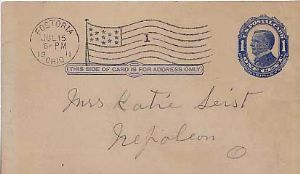 FOSTORIA
JUL 15
6-PM
OHIO
1
THIS SIDE OF CARD IS FOR ADDRESS ONLY
U.S. POSTAL CARD
1 1
ONE CENT
Miss Katie Seist
Napoleon
O